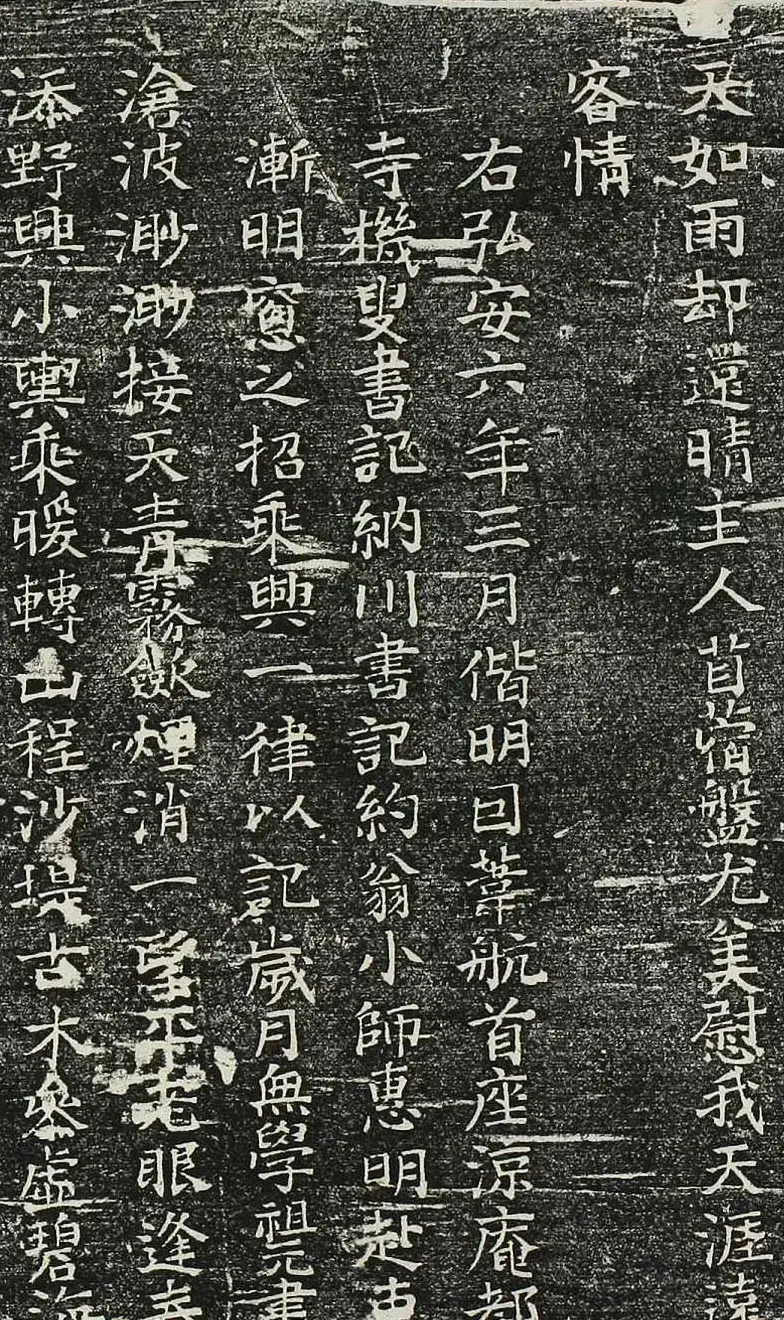 天如雨却還晴主人苜蓿盤尤美慰我天涯遠
客情
右弘安六年三月偕明囙葦航首座涼庵都
寺機叟書記納川書記約翁小師惠明赴
漸明窻之招乘興一律以記歲月無學祖元書
滄波渺渺接天青霧斂煙消一望平老眼逢
添野興小輿乘暖轉山程沙堤古木參虛碧海